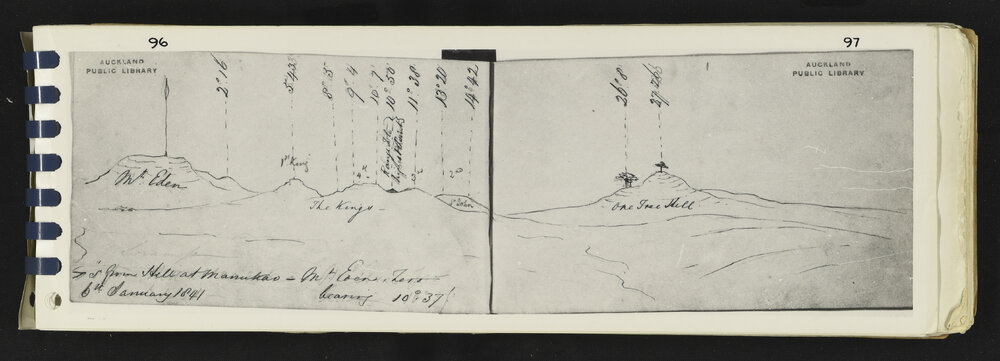 96
97
AUCKLAND
PUBLIC LIBRARY
AUCKLAND
PUBLIC LIBRARY
2° 16
5° 42
8° 5
9° 4
10° 7
10° 50
11° 38
13° 20
14° 42
26° 8
Rangitoto
highest Points
1st King
4th
3d
2d
Mt Eden
The Kings
St John
One Tree Hill
from Hill at Manukao – Mt Eden
6th January 1841
bearing 10° 37